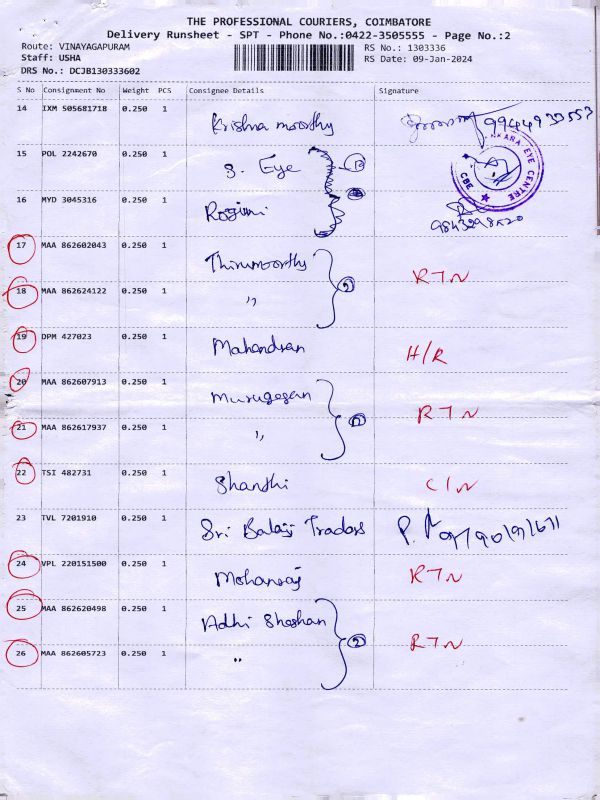 THE PROFESSIONAL COURIERS, COIMBATORE
Delivery Runsheet - SPT - Phone No.:0422-3505555 - Page No.:2
Route: VINAYAGAPURAM RS No.: 1303336
Staff: USHA RS Date: 09-Jan-2024
DRS No.: DCJB130333602
S No Consignment No Weight PCS Consignee Details Signature
14 IXM 505681718 0.250 1 Krishna moorthy 9944933553
15 POL 2242670 0.250 1 S. Eye
KARA EYE CENTRE CBE
16 MYD 3045316 0.250 1
17 MAA 862602043 0.250 1 Thirumoorthy RTN
18 MAA 862624122 0.250 1 " 2
19 DPM 427023 0.250 1 Mahendran H/R
20 MAA 862607913 0.250 1 Murugesan RTN
21 MAA 862617937 0.250 1 "
22 TSI 482731 0.250 1 Shanthi C/N
23 TVL 7201910 0.250 1 Sri Balaji Tradors
24 VPL 220151500 0.250 1 Mohanraj RTN
25 MAA 862620498 0.250 1 Adhi Sheshan RTN
26 MAA 862605723 0.250 1 " 2